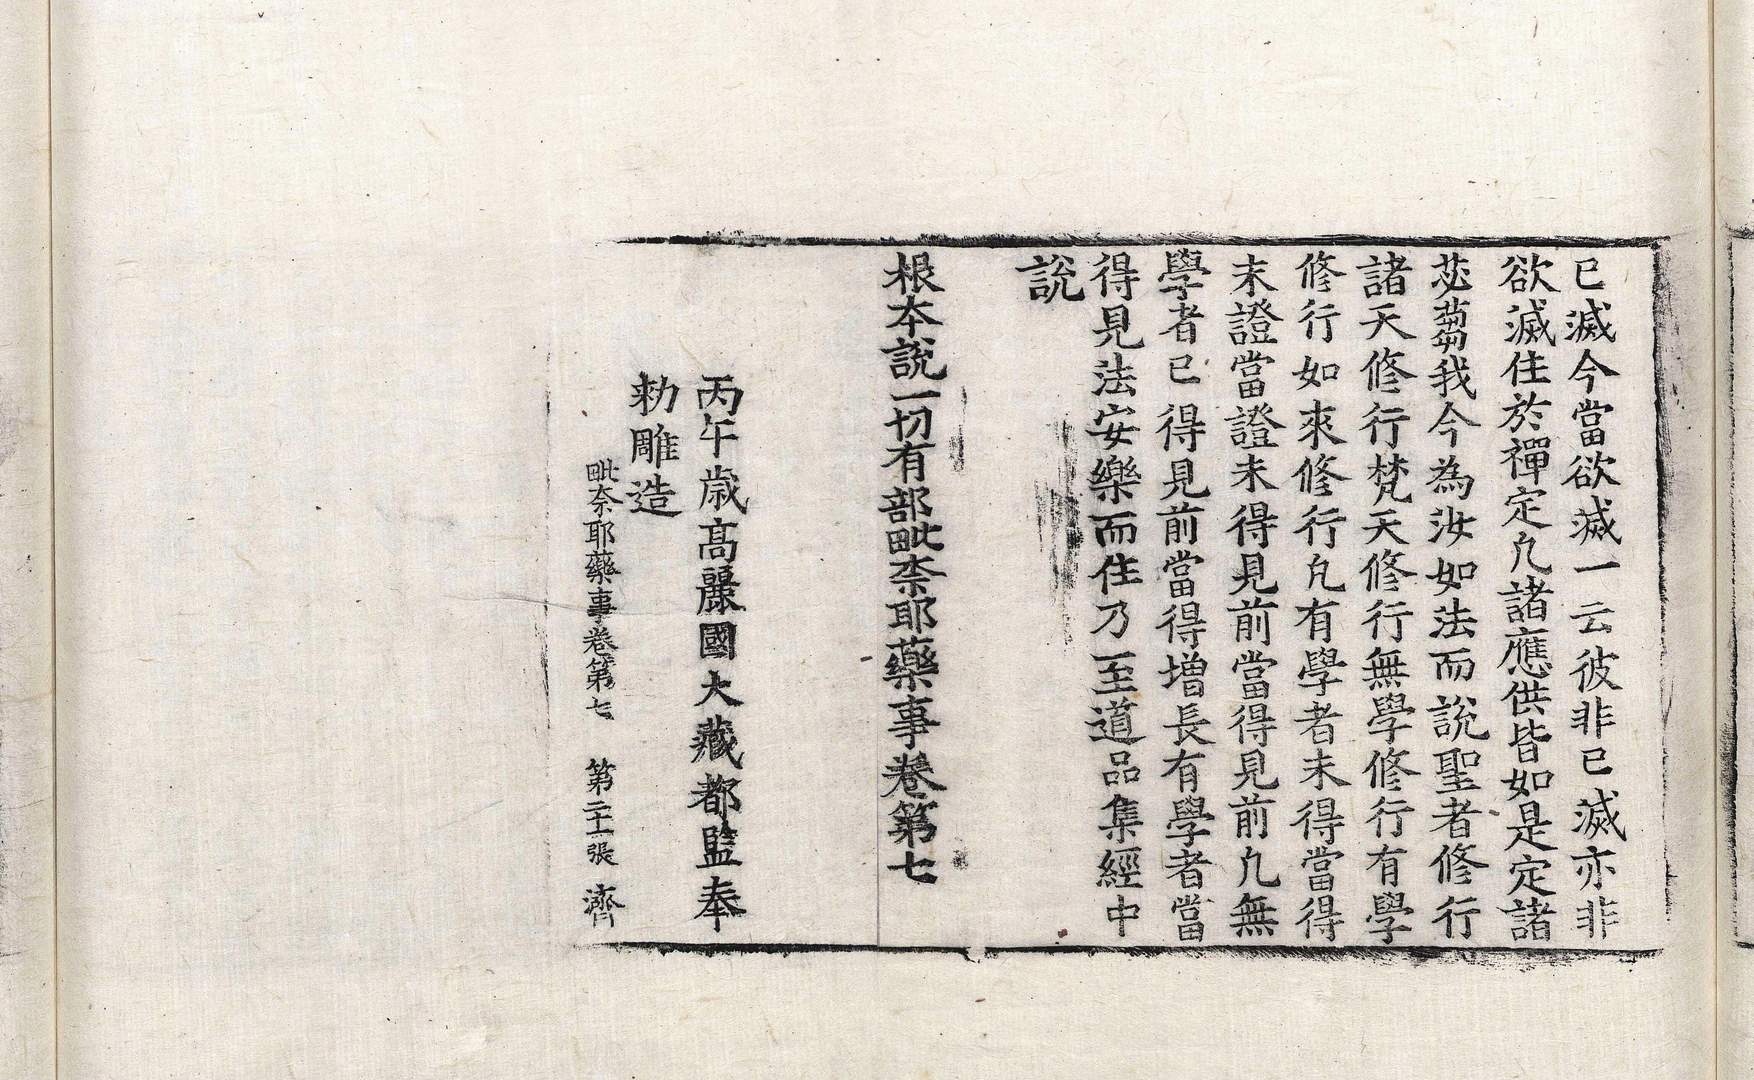 已滅今當欲滅一云彼非已滅亦非
欲滅住於禪定凢諸應供皆如是定諸
苾蒭我今為汝如法而說聖者修行
諸天修行梵天修行無學修行有學
修行如來修行凢有學者未得當得
未證當證未得見前當得見前凢無
學者已得見前當得增長有學者當
得見法安樂而住乃至道品集經中
說
根本說一切有部毗柰耶藥事卷第七
丙午歲高麗國大藏都監奉
勑雕造
毗柰耶藥事卷第七 第二十一張 濟